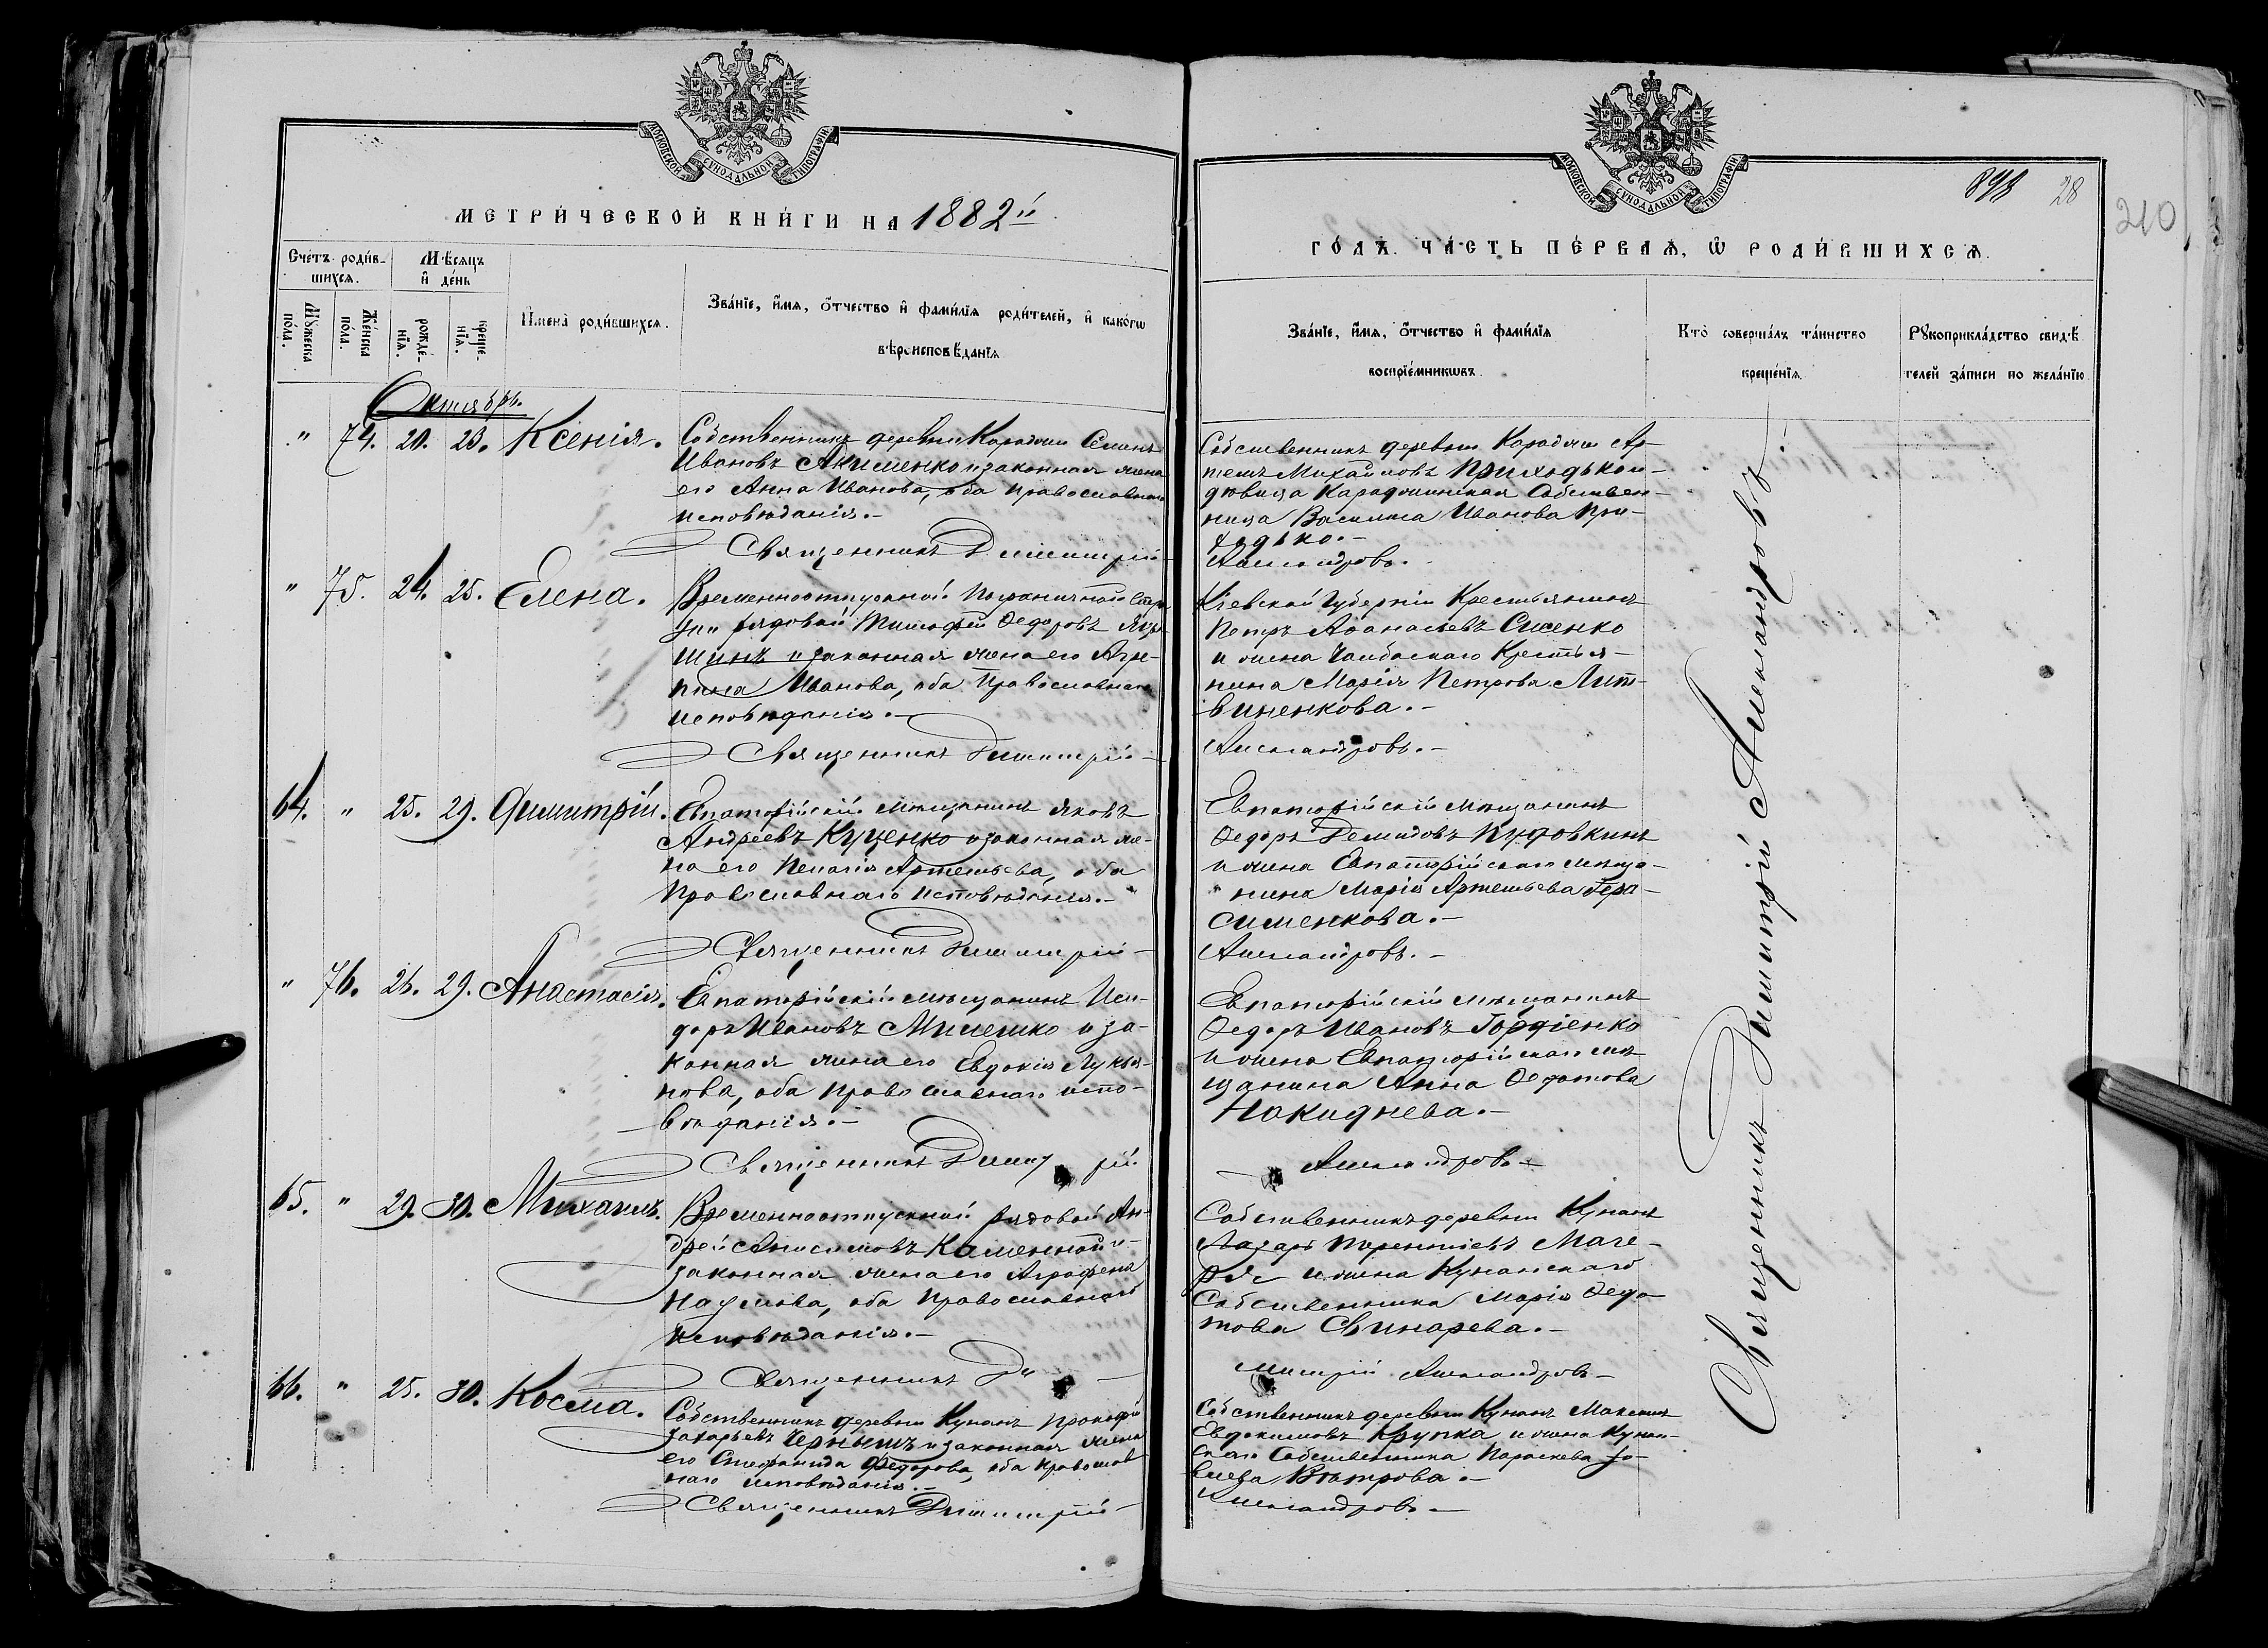 МОСКОВСКОЙ СУНОДАЛЬНОЙ ТИПОГРАФІИ
МЕТРИ́ЧЕСКОЙ КНИ́ГИ НА 1882й
Сче́тъ роди́в-
шихся.
Мѣ́сяцъ
и҆ де́нь
Мꙋ́жеска
по́ла.
Же́нска
по́ла.
рожде́-
нїѧ.
креще́-
нїѧ.
И҆мена̀ роди́вшихся.
Зва́нїе, и҆́мѧ, ѻ҆́тчество и҆ фами́лїѧ роди́телей, и҆ како́гѡ
вѣроисповѣ́данїѧ
Октябрь.
" 74. 20. 23. Ксенія.
Собственникъ деревни Караджи Семенъ
Ивановъ Акименко и законная жена
его Анна Иванова, оба православнаго
исповѣданія.-
Священникъ Димитрій
" 75. 24. 25. Елена.
Временноотпускной Пограничной Стра
жи рядовой Тимофей Ѳедоровъ
шинъ и законная жена его Агри-
пина Иванова, оба Православнаго
исповѣданія.-
Священникъ Димитрій-
64. " 25. 29. Димитрій.
Евпаторійскій мѣщанинъ Яковъ
Андреевъ Куценко и законная же-
на его Пелагія Артемьева, оба
Православнаго исповѣданія.-
Священникъ Димитрій-
" 76. 26. 29. Анастасія.
Евпаторійскій мѣщанинъ Иси-
доръ Ивановъ и за-
конная жена его Евдокія Лукья-
нова, оба православнаго испо-
вѣданія.-
Священникъ Димит рій
65. " 29. 30. Михаилъ.
Временноотпускной рядовой Ан-
дрей Анисимовъ Каменной и
законная жена его Аграфена
Наумова, оба Православнаго
исповѣданія.-
Священникъ Ди
66. " 25. 30. Косма.
Собственникъ деревни Кунанъ Прокофій
Захарьевъ Чернышъ и законная жена
его Стефанида Федорова, оба православ
наго исповѣданія.-
Священникъ Димитрій-
МОСКОВСКОЙ СУНОДАЛЬНОЙ ТИПОГРАФІИ
28
210
ГО́ДЪ. ЧА́СТЬ ПЕ́РВАѦ, Ѡ҆ РОДИ́ВШИХСѦ.
Зва́нїе, и҆́мѧ, ѻ҆́тчество и҆ фами́лїѧ
воспрїе́мникѡвъ.
Кто̀ соверша́лъ та́инство
креще́нїѧ.
Рꙋкоприкла́дство свидѣ́
телей за́писи по жела́нїю
Собственникъ деревни Караджи Ар-
темъ Михайловъ Приходько и
дѣвица Караджинская Собствен-
ница Василиса Иванова При-
ходько.-
Александровъ.-
Кіевской Губерніи Крестьянинъ
Петръ Аѳанасьевъ Сисенко
и жена Крестья-
нина Марія Петрова Лит-
виненкова.-
Александровъ.-
Евпаторійскій мѣщанинъ
Ѳедоръ Демидовъ Пудовкинъ
и жена Евпаторійскаго мѣща-
нина Марія Артемьева Гера-
сименкова.-
Александровъ.-
Евпаторійскій мѣщанинъ
Ѳедоръ Ивановъ Гордіенко
и жена Евпаторійскаго мѣ
щанина Анна Ѳедотова
Накиднева.-
Александровъ-
Собственникъ деревни Кунанъ
Лазарь Терентіевъ
и жена Кунанскаго
Собственника Марія Ѳедо
това Свинарева.-
митрій Александровъ-
Собственникъ деревни Кунанъ Максимъ
Евдокимовъ Крупка и жена Кунан-
скаго Собственника Параскева
Вѣтрова.-
Александровъ-
Священникъ Димитрій Александровъ.